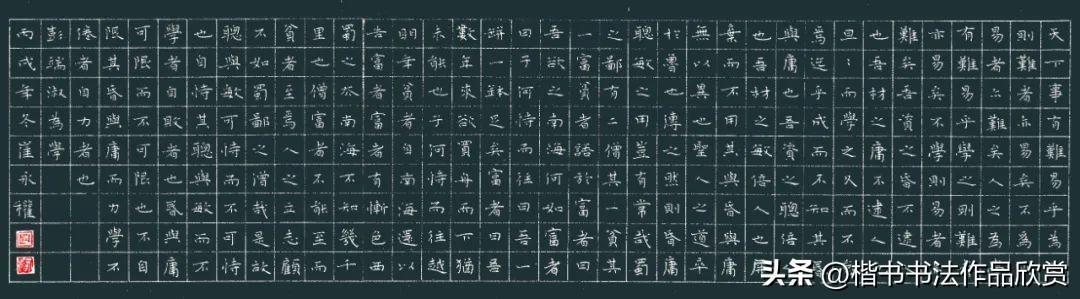 天下事有難易乎為
則難者亦易矣不為
易者亦難矣人之為
有難易乎學之則難
亦易矣不學則易者
難矣吾資之昏不逮
也吾材之庸不逮人
旦旦而學之久而不
焉迄乎成而不知其
與庸也吾資之聰倍
也吾材之敏倍人也屏
棄而不用其與昏與庸
無以異也聖人之道卒
於魯也傳之然則昏庸
聰敏之用豈有常哉蜀
之鄙有二僧其一貧其
一富貧者語於富者曰
吾欲之南海何如富者
曰子何恃而往曰吾一
缾一缽足矣富者曰吾
數年來欲買舟而下猶
未能也子何恃而往越
明年貧者自南海還以
告富者富者有慚色西
蜀之去南海不知幾千
里也僧富者不能至而
貧者至焉人之立志顧
不如蜀鄙之僧哉是故
聰與敏可恃而不可恃
也自恃其聰與敏而不
學者自敗者也昏與庸
可限而不可限也不自
限其昏與庸而力學不
倦者自力者也
彭端淑為學
丙戌年冬崔永權
头条@楷书书法作品欣赏